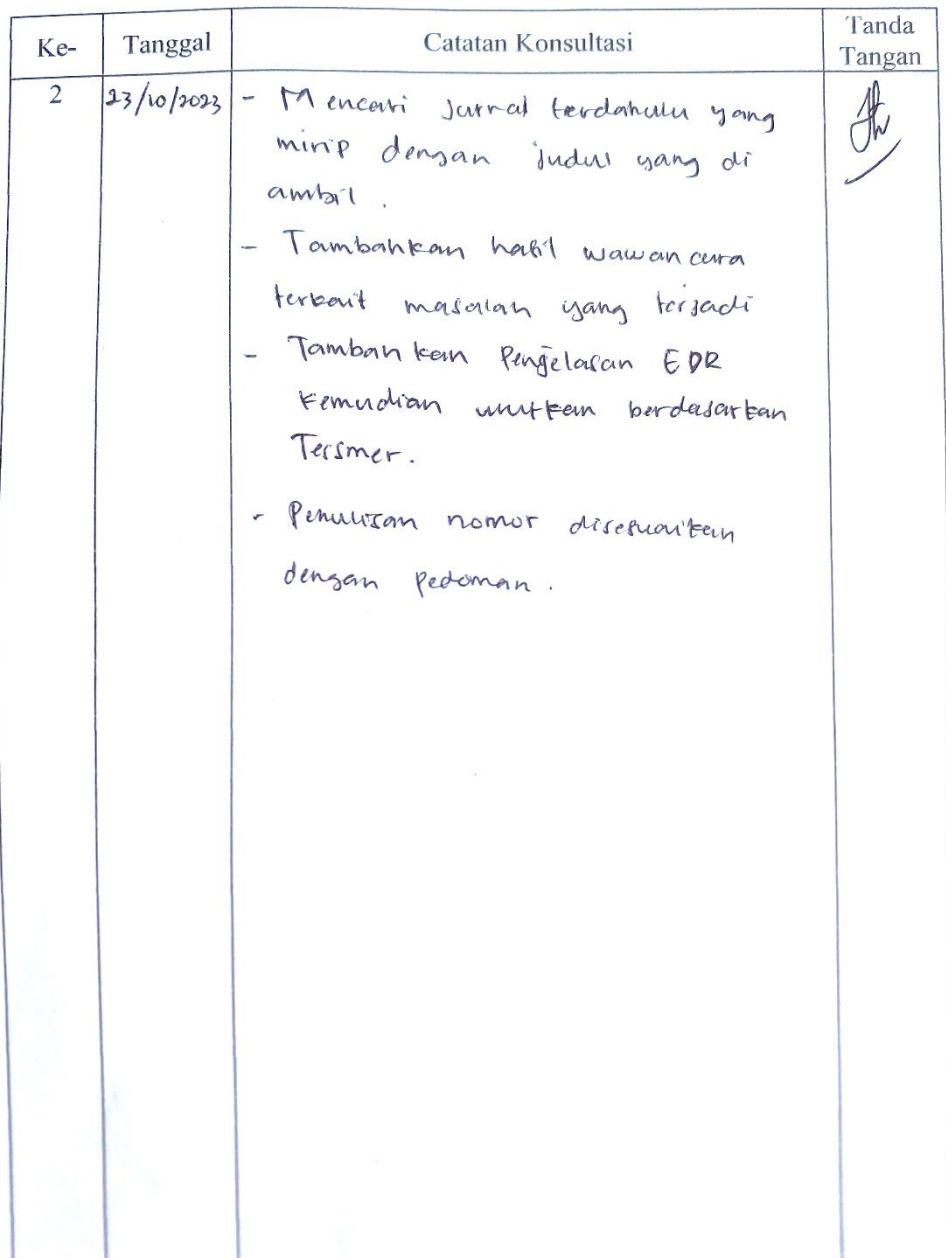 Ke-
Tanggal
Catatan Konsultasi
Tanda
Tangan
2
23/10/2023
- Mencari Jurnal terdahulu yang
mirip dengan judul yang di
ambil.
- Tambahkan hasil wawancara
terkait masalah yang terjadi
- Tambahkan Penjelasan EDR
Kemudian urutkan berdasarkan
- Penulisan nomor disesuaikan
dengan pedoman.